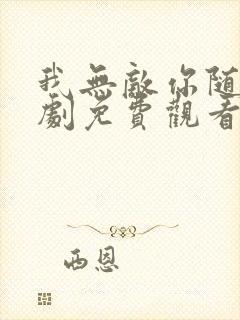 我無敵你随
劇免費觀看
西恩